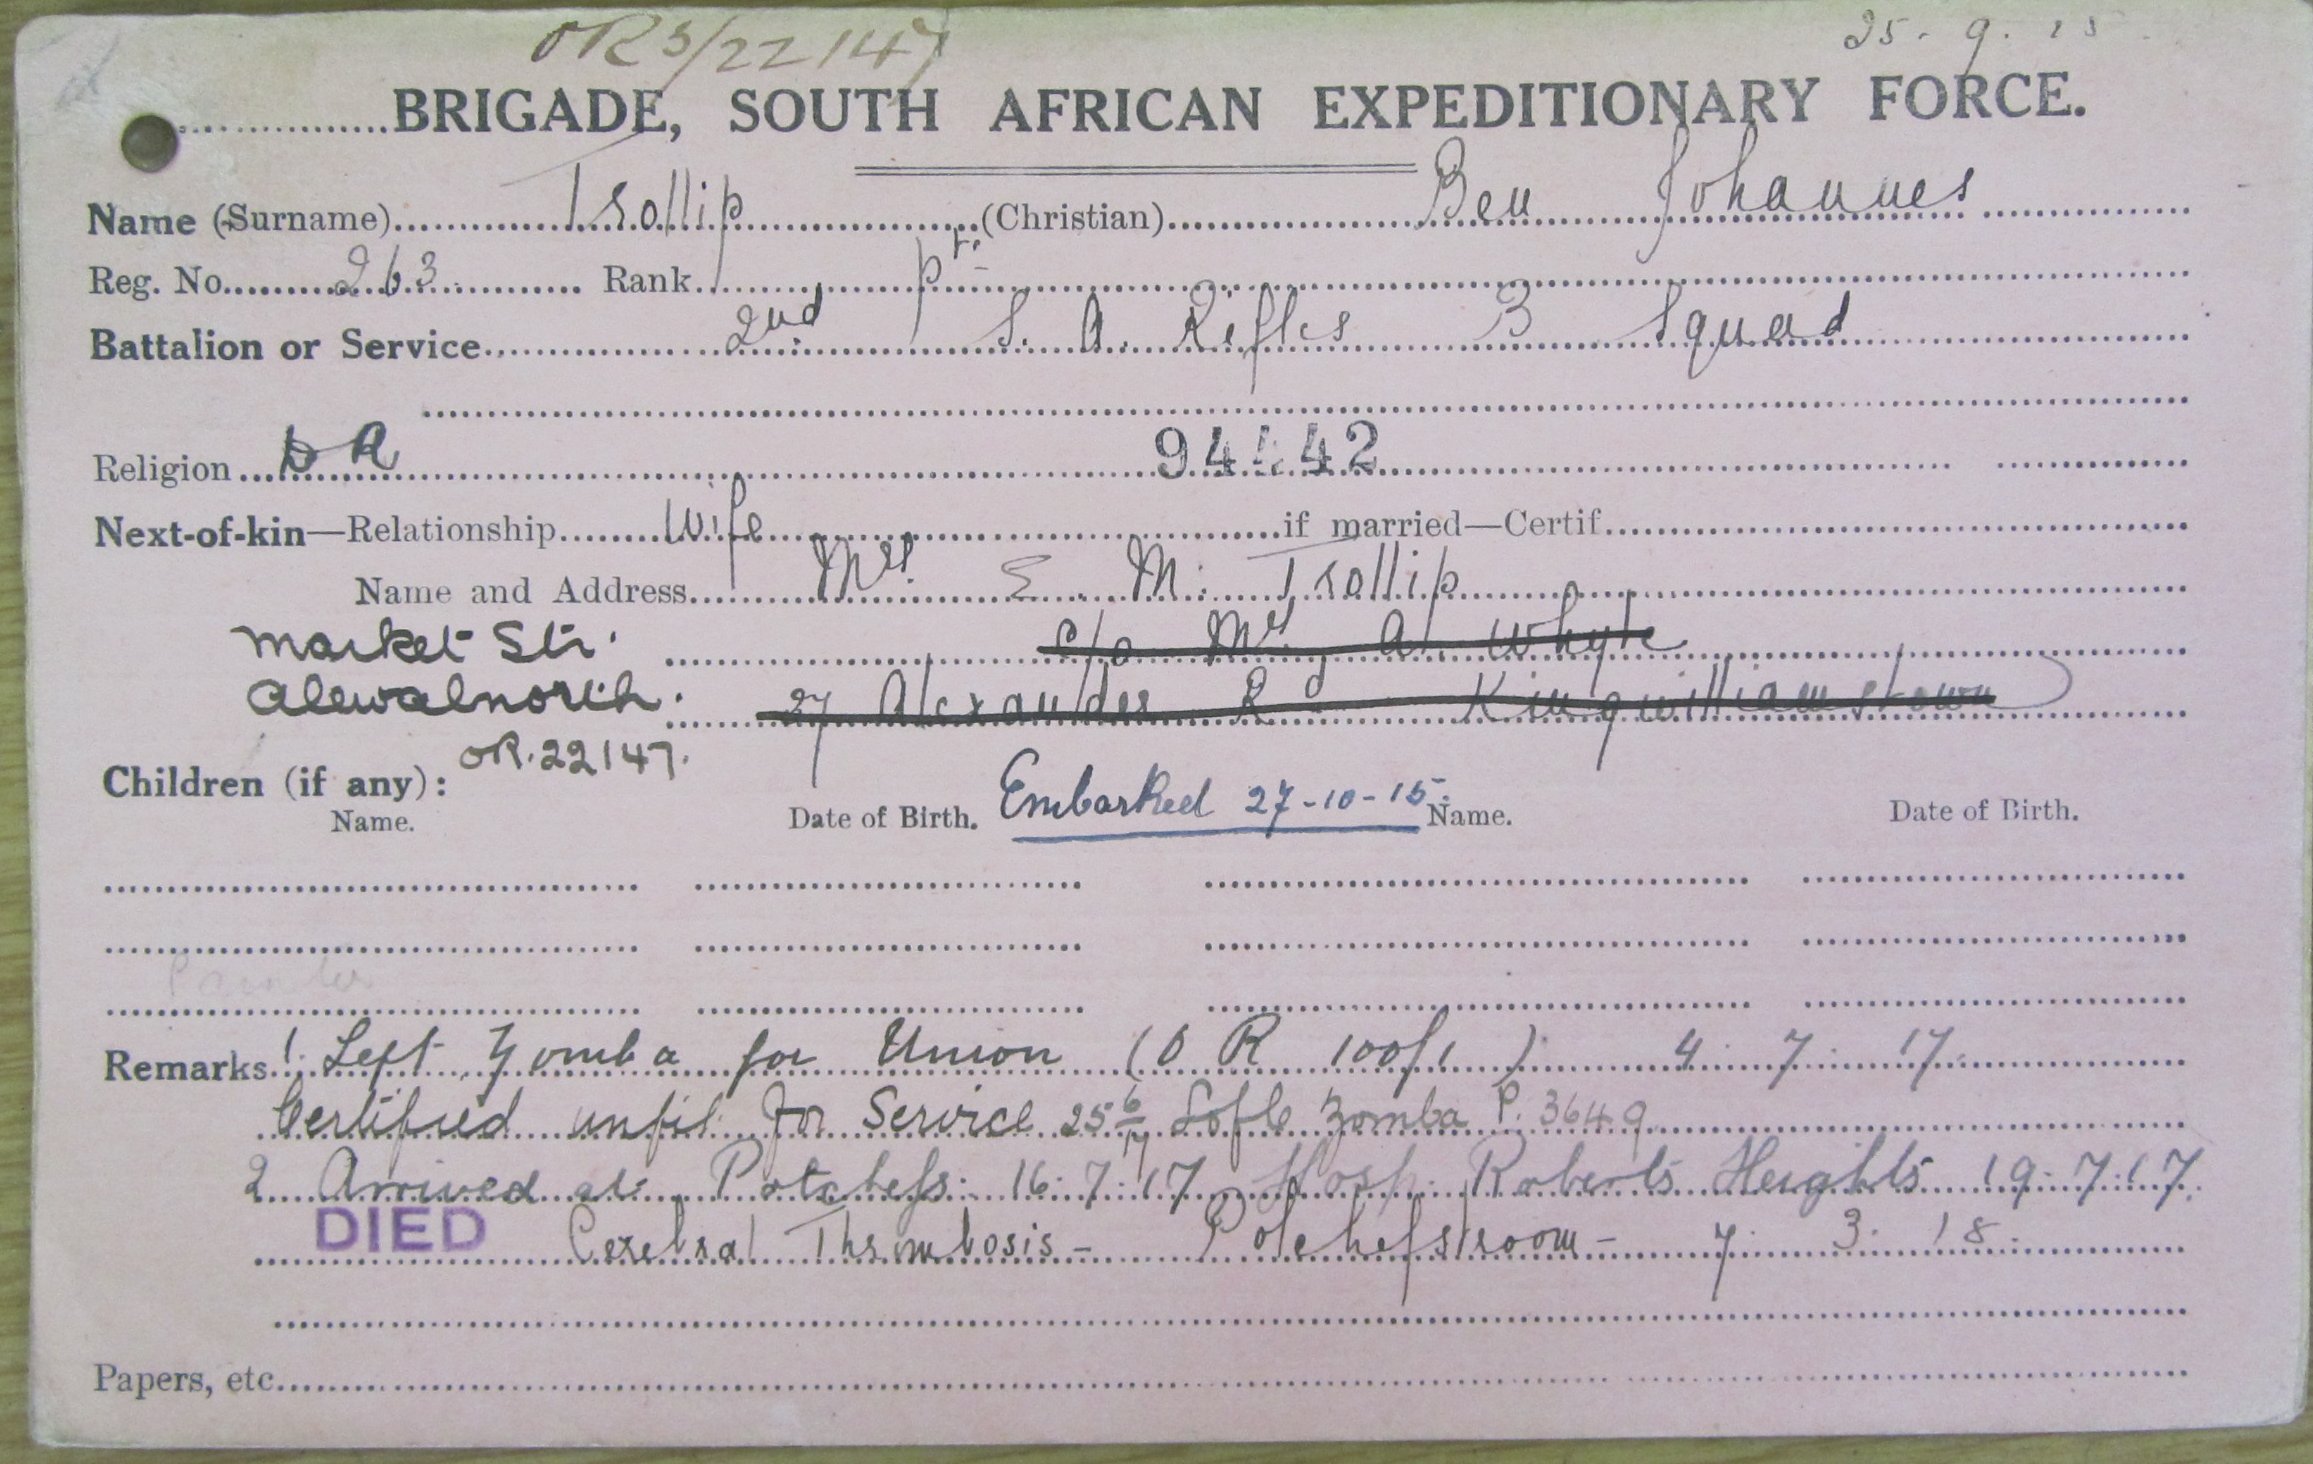 OR 3/22147
25.9.15
BRIGADE, SOUTH AFRICAN EXPEDITIONARY FORCE.
Name (Surname) Trollip (Christian) Ben Johannes
Reg. No. 263 Rank Pt.
Battalion or Service 2nd S. A. Rifles B Squad
Religion 94442
Next-of-kin—Relationship Wife if married—Certif.
Name and Address Mrs. E. M. Trollip
Market Str. c/o Mr. A. Whyte
Aliwalnorth. 27 Alexander Rd Kingwilliamstown
OR.22147.
Children (if any):
Name. Date of Birth. Embarked 27-10-15. Name. Date of Birth.
Remarks 1. Left Zomba for Union (O R 100/1) 4.7.17
Certified unfit for Service 25 6/17 Zomba P. 3649
2 Arrived at Potchefs. 16.7.17 Hosp. Roberts Heights 19.7.17
DIED Cerebral Thrombosis - Potchefstroom - 7.3.18.
Papers, etc.